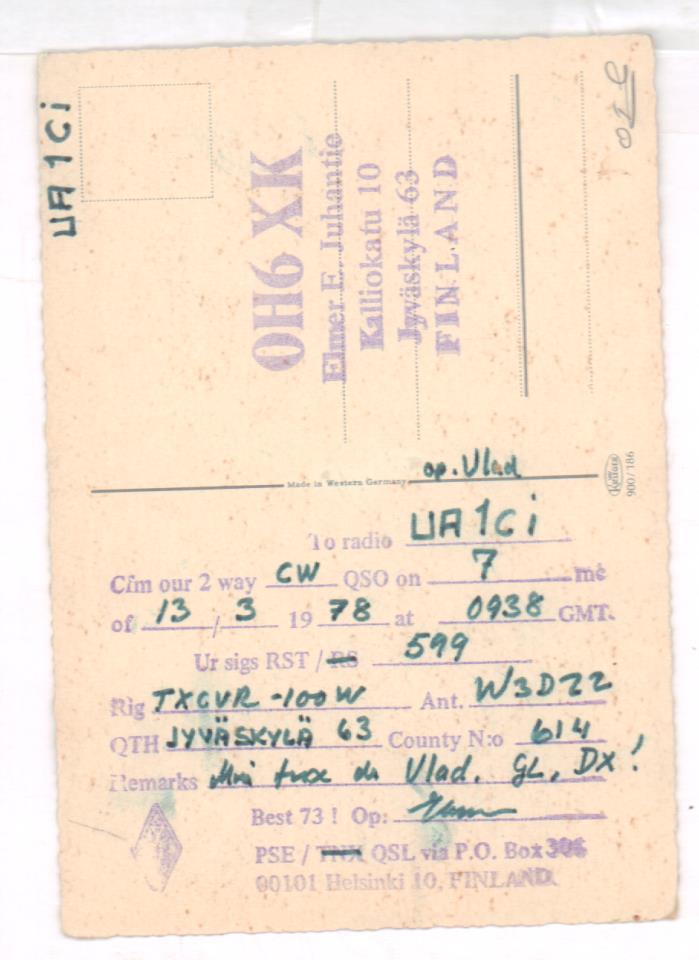 UA1Ci
OH6 XK
Elmer E. Juhantie
Kalliokatu 10
Jyväskylä 63
FINLAND
Made in Western Germany
900/186
op. Vlad
To radio UA1Ci
Cfm our 2 way CW QSO on 7 mc
of 13 / 3 1978 at 0938 GMT.
Ur sigs RST / RS 599
Rig TXCVR -100W Ant. W3DZZ
QTH JYVÄSKYLÄ 63 County N:o 614
Remarks Mni tnx dr Vlad. GL, DX!
Best 73 ! Op:
PSE / TNX QSL via P.O. Box 306
00101 Helsinki 10, FINLAND